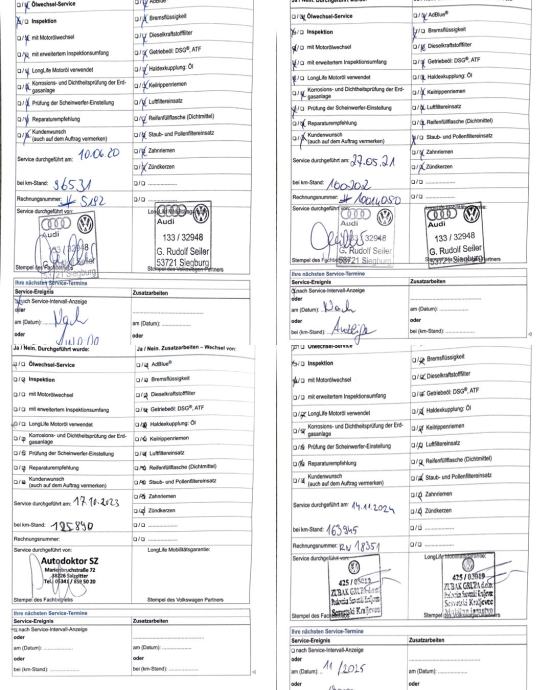 Ölwechsel-Service
AdBlue®
Inspektion
Bremsflüssigkeit
mit Motorölwechsel
Dieselkraftstofffilter
mit erweitertem Inspektionsumfang
Getriebeöl: DSG®, ATF
LongLife Motoröl verwendet
Haldexkupplung: Öl
Korrosions- und Dichtheitsprüfung der Erd-
gasanlage
Keilrippenriemen
Prüfung der Scheinwerfer-Einstellung
Luftfiltereinsatz
Reparaturempfehlung
Reifenfüllflasche (Dichtmittel)
Kundenwunsch
(auch auf dem Auftrag vermerken)
Staub- und Pollenfiltereinsatz
Zahnriemen
Service durchgeführt am: 10.06.20
Zündkerzen
bei km-Stand: 96531
Rechnungsnummer: # 5192
Service durchgeführt von:
Audi
133 / 32948
53721 Siegburg
Stempel des Fachbetriebs
Audi
133 / 32948
G. Rudolf Seiler
53721 Siegburg
Stempel des Volkswagen Partners
Ihre nächsten Service-Termine
Service-Ereignis
Zusatzarbeiten
nach Service-Intervall-Anzeige
oder
am (Datum): Nach
am (Datum):
oder
oder
Ölwechsel-Service
AdBlue®
Inspektion
Bremsflüssigkeit
mit Motorölwechsel
Dieselkraftstofffilter
mit erweitertem Inspektionsumfang
Getriebeöl: DSG®, ATF
LongLife Motoröl verwendet
Haldexkupplung: Öl
Korrosions- und Dichtheitsprüfung der Erd-
gasanlage
Keilrippenriemen
Prüfung der Scheinwerfer-Einstellung
Luftfiltereinsatz
Reparaturempfehlung
Reifenfüllflasche (Dichtmittel)
Kundenwunsch
(auch auf dem Auftrag vermerken)
Staub- und Pollenfiltereinsatz
Zahnriemen
Service durchgeführt am: 27.05.21
Zündkerzen
bei km-Stand: 100202
Rechnungsnummer: # 10014050
Service durchgeführt von:
Audi
133 / 32948
G. Rudolf Seiler
53721 Siegburg
Audi
133 / 32948
G. Rudolf Seiler
53721 Siegburg
Ihre nächsten Service-Termine
Service-Ereignis
Zusatzarbeiten
nach Service-Intervall-Anzeige
oder
am (Datum): Nach
am (Datum):
oder
oder
bei (km-Stand):
bei (km-Stand):
Ja / Nein. Durchgeführt wurde:
Ja / Nein. Zusatzarbeiten – Wechsel von:
Ölwechsel-Service
AdBlue®
Inspektion
Bremsflüssigkeit
mit Motorölwechsel
Dieselkraftstofffilter
mit erweitertem Inspektionsumfang
Getriebeöl: DSG®, ATF
LongLife Motoröl verwendet
Haldexkupplung: Öl
Korrosions- und Dichtheitsprüfung der Erd-
gasanlage
Keilrippenriemen
Prüfung der Scheinwerfer-Einstellung
Luftfiltereinsatz
Reparaturempfehlung
Reifenfüllflasche (Dichtmittel)
Kundenwunsch
(auch auf dem Auftrag vermerken)
Staub- und Pollenfiltereinsatz
Zahnriemen
Service durchgeführt am: 17.10.2023
Zündkerzen
bei km-Stand: 125890
Rechnungsnummer:
Service durchgeführt von:
LongLife Mobilitätsgarantie:
Autodoktor SZ
38226 Salzgitter
Stempel des Fachbetriebs
Stempel des Volkswagen Partners
Ihre nächsten Service-Termine
Service-Ereignis
Zusatzarbeiten
nach Service-Intervall-Anzeige
oder
am (Datum):
am (Datum):
oder
oder
bei (km-Stand):
bei (km-Stand):
Ölwechsel-Service
Bremsflüssigkeit
Inspektion
Dieselkraftstofffilter
mit Motorölwechsel
Getriebeöl: DSG®, ATF
mit erweitertem Inspektionsumfang
Haldexkupplung: Öl
LongLife Motoröl verwendet
Keilrippenriemen
Korrosions- und Dichtheitsprüfung der Erd-
gasanlage
Luftfiltereinsatz
Prüfung der Scheinwerfer-Einstellung
Reifenfüllflasche (Dichtmittel)
Reparaturempfehlung
Staub- und Pollenfiltereinsatz
Kundenwunsch
(auch auf dem Auftrag vermerken)
Zahnriemen
Zündkerzen
Service durchgeführt am: 14.11.2024
bei km-Stand: 163945
Rechnungsnummer: RN 18351
Service durchgeführt von:
425 / 03019
425 / 03019
Ihre nächsten Service-Termine
Service-Ereignis
Zusatzarbeiten
nach Service-Intervall-Anzeige
oder
am (Datum): 11 / 2025
am (Datum):
oder
oder